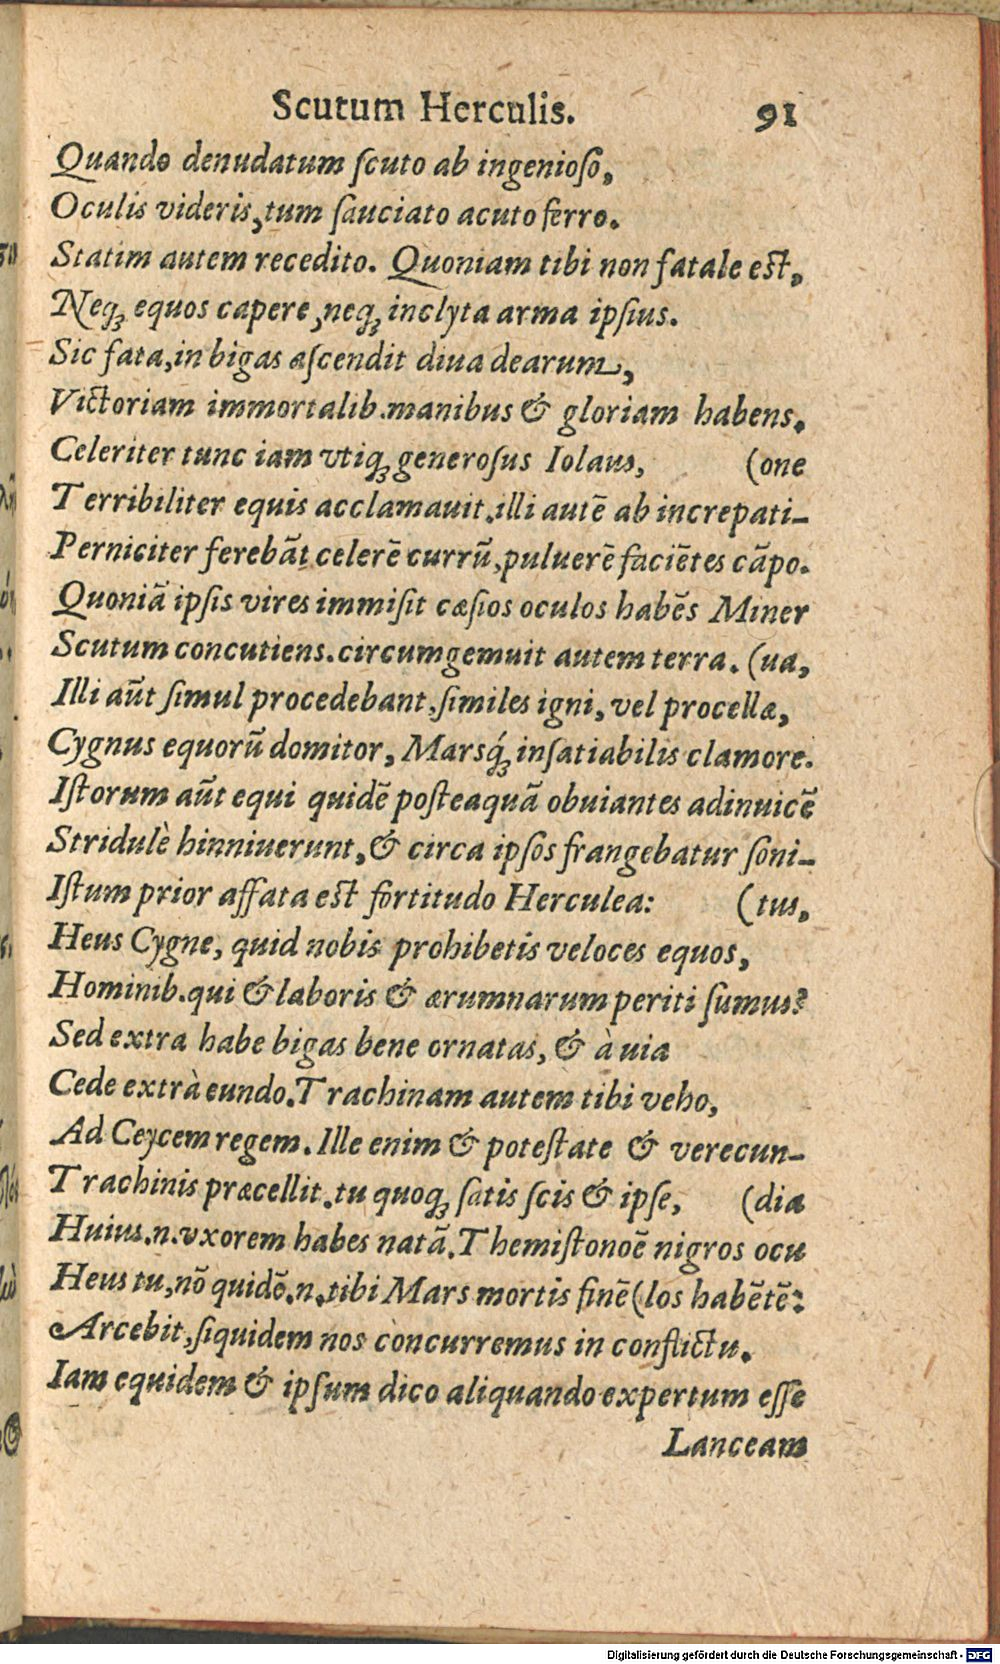 Scutum Herculis. 91
Quando denudatum ſcuto ab ingenioſo,
Oculis videris, tum ſauciato acuto ferro.
Statim autem recedito. Quoniam tibi non fatale est,
Neqꝫ equos capere, neqꝫ inclyta arma ipſius.
Sic fata, in bigas aſcendit diua dearum,
Victoriam immortalib. manibus & gloriam habens.
Celeriter tunc iam vtiqꝫ generoſus Iolaus, (one
Terribiliter equis acclamauit. illi autē ab increpati-
Perniciter ferebāt celerē currū, puluerē faciētes cāpo.
Quoniā ipſis vires immiſit cæſios oculos habēs Miner
Scutum concutiens. circumgemuit autem terra. (ua,
Illi aūt ſimul procedebant, ſimiles igni, vel procellæ,
Cygnus equorū domitor, Marsq́ꝫ inſatiabilis clamore.
Iſtorum aūt equi quidē poſteaquā obuiantes adinuicē
Stridulè hinniuerunt, & circa ipſos frangebatur ſoni-
Iſtum prior affata est fortitudo Herculea: (tus,
Heus Cygne, quid nobis prohibetis veloces equos,
Hominib. qui & laboris & ærumnarum periti ſumus?
Sed extra habe bigas bene ornatas, & à uia
Cede extrà eundo. Trachinam autem tibi veho,
Ad Ceycem regem. Ille enim & poteſtate & verecun-
Trachinis præcellit. tu quoqꝫ ſatis ſcis & ipſe, (dia
Huius .n. vxorem habes natā. Themiſtonoē nigros ocu
Heus tu, nō quidē .n. tibi Mars mortis finē (los habētē:
Arcebit, ſiquidem nos concurremus in conflictu.
Iam equidem & ipſum dico aliquando expertum eſſe
Lanceam
Digitalisierung gefördert durch die Deutsche Forschungsgemeinschaft - DFG